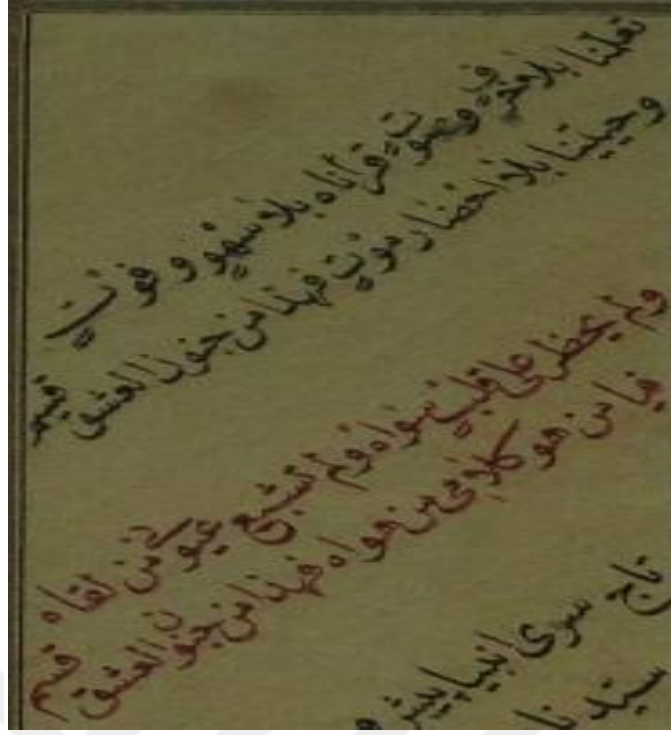 تعلمنا بلا حرفٍ وصوتٍ قرأناه بلا سهوٍ وفوتٍ
وحيينا بلا احضار موتٍ فهذا من جنون العشق قسم
ولم يخطر على قلبٍ سواه ولم تشبع عيوني من لقاه
فيا من هو كلامي من هواه فهذا من جنون العشق قسم
تاج سرى انبيا پيشرو
سيدنا